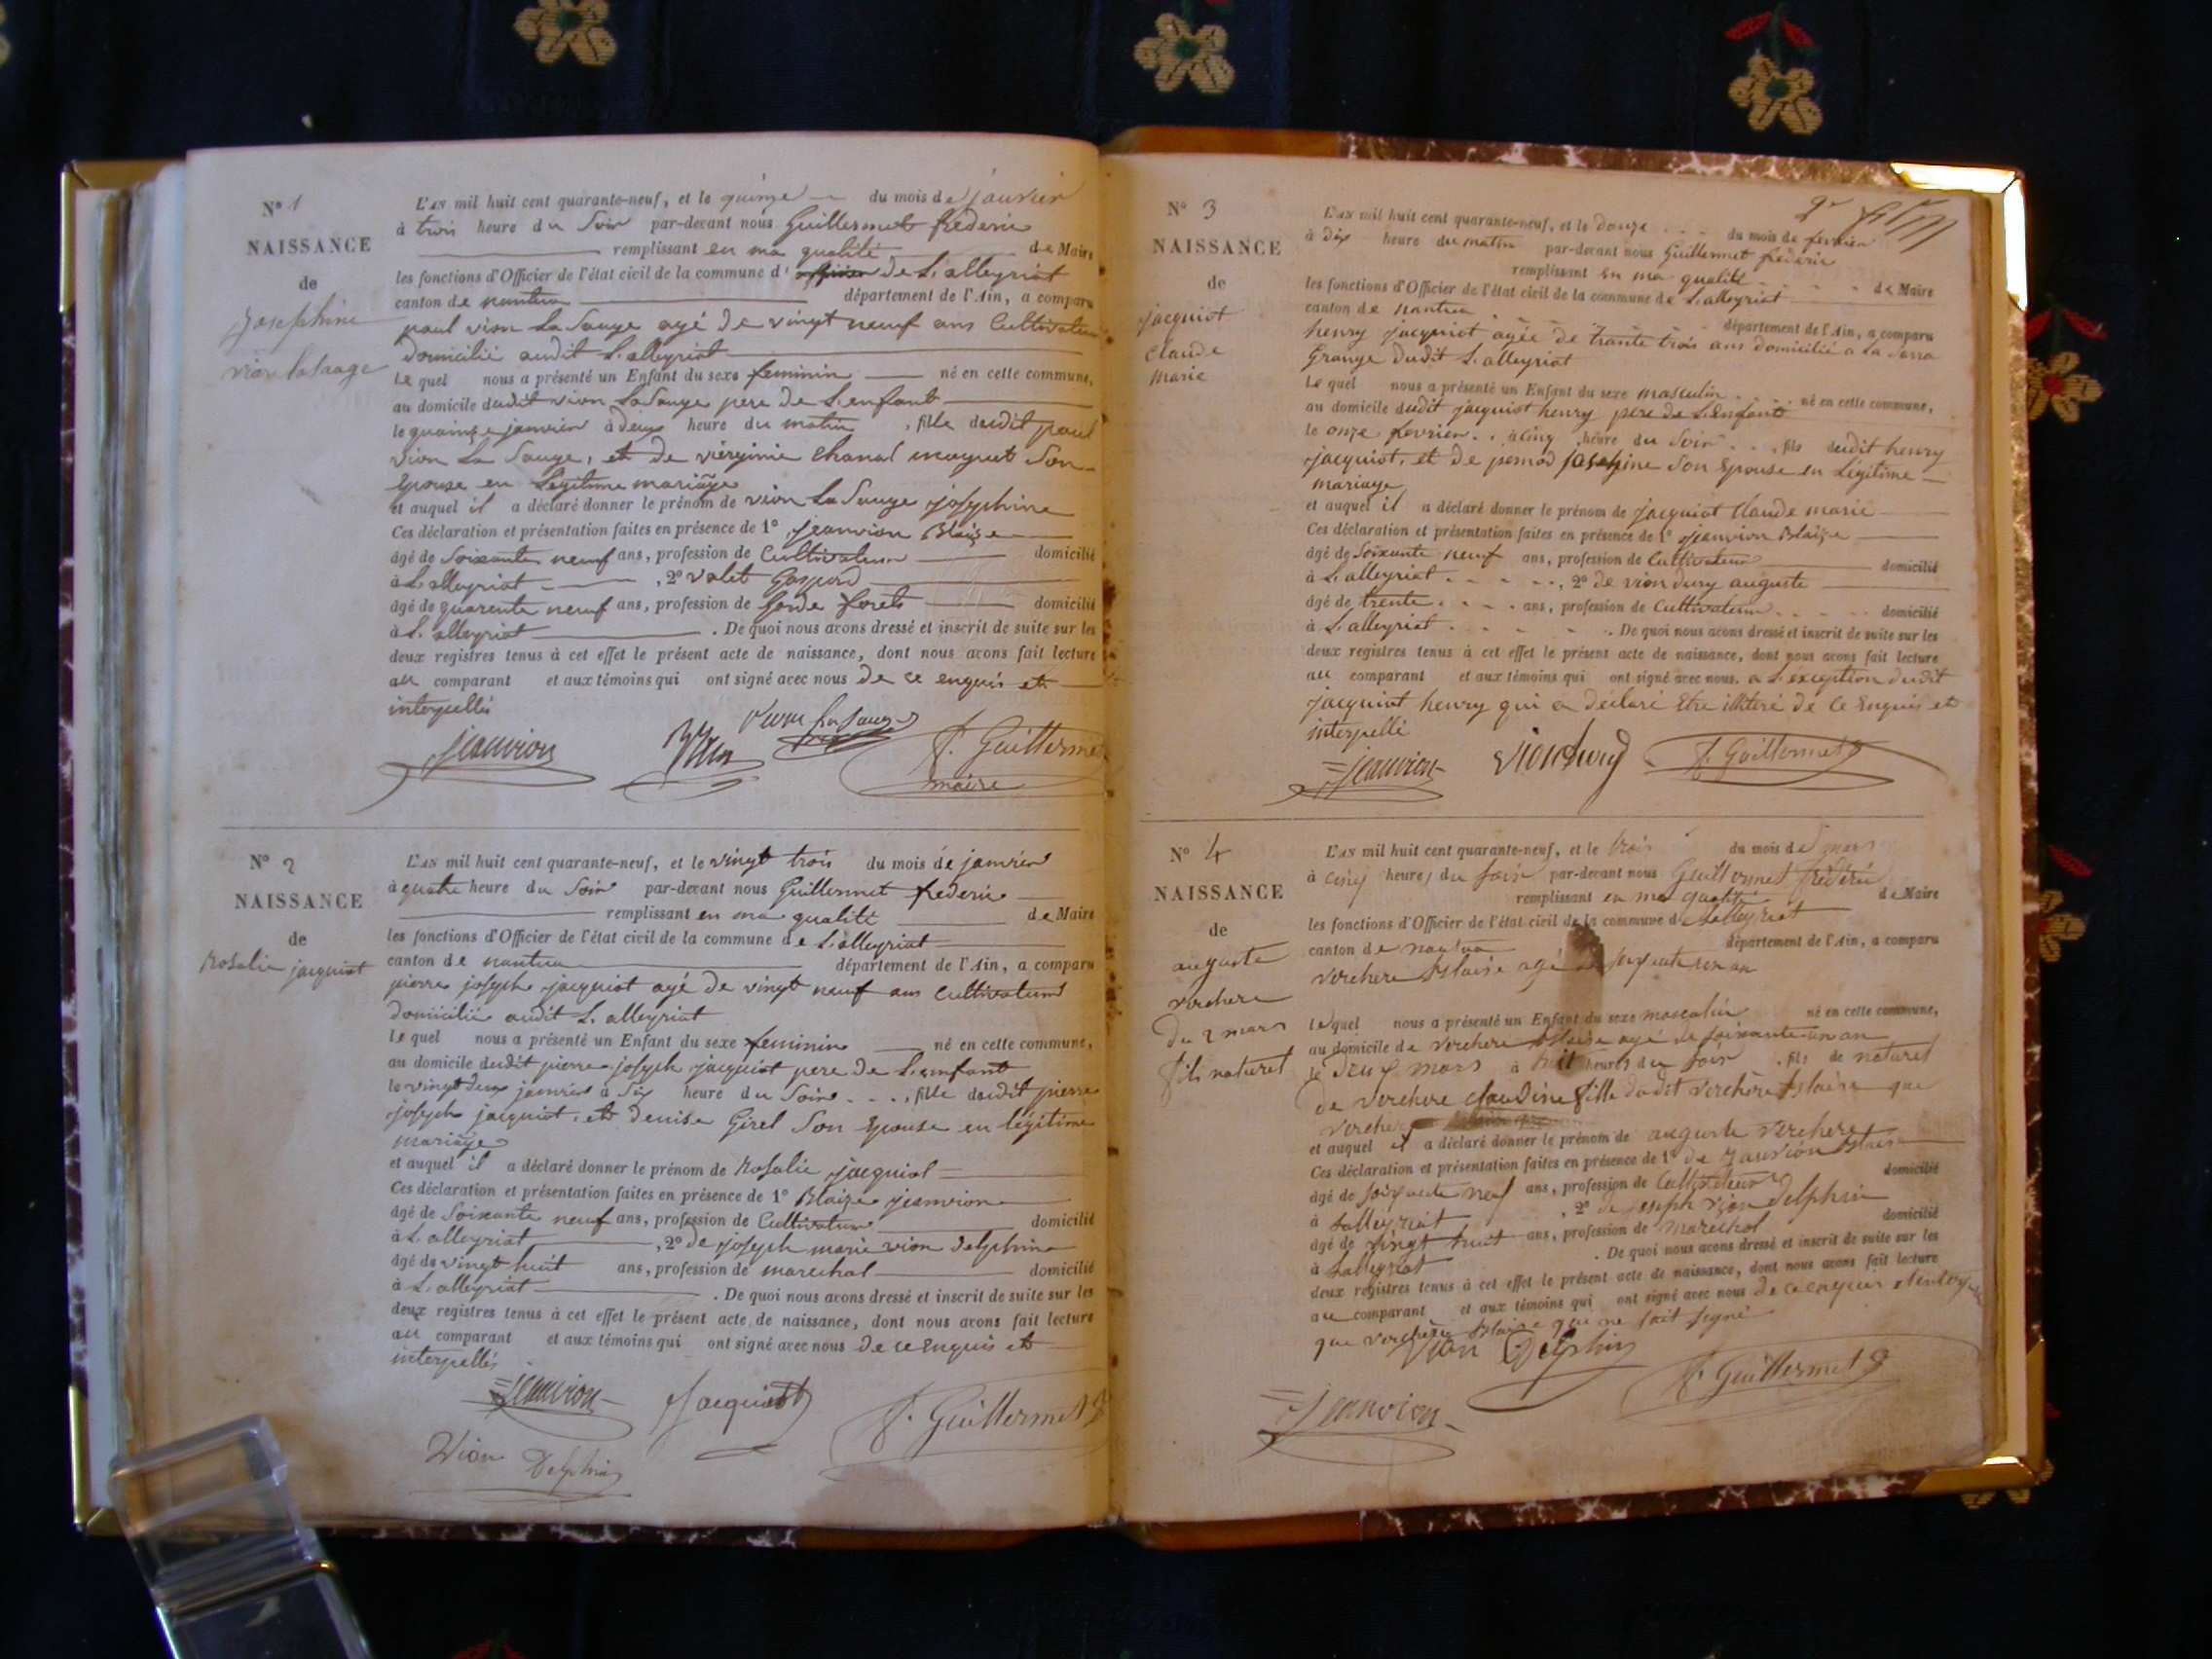 N° 1
NAISSANCE
de
Josephine
vion lasauge
L'AN mil huit cent quarante-neuf, et le quinze du mois de janvier
à trois heure du Soir par-devant nous Guillermet frederic
remplissant en ma qualité de Maire
les fonctions d'Officier de l'état civil de la commune d' de S. alleyriat
canton de nantua département de l'Ain, a comparu
paul vion La Sauge agé de vingt neuf ans Cultivateur
domicilié audit S. alleyriat
Le quel nous a présenté un Enfant du sexe feminin né en cette commune,
au domicile dudit vion La Sauge pere de L'enfant
le quainze janvier à deux heure du matin, fille dudit paul
vion La Sauge, et de vierginie Chanal son
Epouse en Legitime mariage
et auquel il a déclaré donner le prénom de vion La Sauge josephine
Ces déclaration et présentation faites en présence de 1° jeanvion Blaize
âgé de Soixante neuf ans, profession de Cultivateur domicilié
à S. alleyriat, 2° valet Gaspard
âgé de quarente neuf ans, profession de Garde forets domicilié
à S. alleyriat. De quoi nous avons dressé et inscrit de suite sur les
deux registres tenus à cet effet le présent acte de naissance, dont nous avons fait lecture
au comparant et aux témoins qui ont signé avec nous de ce enquis et
interpellés
Vion La Sauge
jeanvion F. Guillermet
maire
N° 2
NAISSANCE
de
Rosalie jacquiot
L'AN mil huit cent quarante-neuf, et le vingt trois du mois de janvier
à quatre heure du Soir par-devant nous Guillermet frederic
remplissant en ma qualité de Maire
les fonctions d'Officier de l'état civil de la commune de S. alleyriat
canton de nantua département de l'Ain, a comparu
pierre joseph jacquiot agé de vingt neuf ans Cultivateur
domicilié audit S. alleyriat
Le quel nous a présenté un Enfant du sexe feminin né en cette commune,
au domicile dudit pierre joseph jacquiot pere de L'enfant
le vingt deux janvier à Six heure du Soir, fille dudit pierre
joseph jacquiot, et denise Girel Son Epouse en légitime
mariage
et auquel il a déclaré donner le prénom de Rosalie jacquiot
Ces déclaration et présentation faites en présence de 1° Blaize jeanvion
âgé de Soixante neuf ans, profession de Cultivateur domicilié
à S. alleyriat, 2° de joseph marie vion delphin
âgé de vingt huit ans, profession de marechal domicilié
à S. alleyriat. De quoi nous avons dressé et inscrit de suite sur les
deux registres tenus à cet effet le présent acte de naissance, dont nous avons fait lecture
au comparant et aux témoins qui ont signé avec nous de ce enquis et
interpellés
jeanvion Jacquiot F. Guillermet
Vion Delphin
N° 3
NAISSANCE
de
jacquiot
Claude
Marie
L'AN mil huit cent quarante-neuf, et le douze du mois de fevrier
à dix heure du matin par-devant nous Guillermet fréderic
remplissant en ma qualité de Maire
les fonctions d'Officier de l'état civil de la commune de S. alleyriat
canton de nantua département de l'Ain, a comparu
henry jacquiot agée de trante trois ans domicilié a La Serra
Grange dudit S. alleyriat
Le quel nous a présenté un Enfant du sexe masculin né en cette commune,
au domicile dudit jacquiot henry pere de L'enfant
le onze fevrier à Cinq heure du Soir, fils dudit henry
jacquiot, et de pernod josephine Son Epouse en Légitime
mariage
et auquel il a déclaré donner le prénom de jacquiot Claude marie
Ces déclaration et présentation faites en présence de 1° jeanvion Blaize
âgé de Soixante neuf ans, profession de Cultivateur domicilié
à S. alleyriat, 2° de vion dury auguste
âgé de trente ans, profession de Cultivateur domicilié
à S. alleyriat. De quoi nous avons dressé et inscrit de suite sur les
deux registres tenus à cet effet le présent acte de naissance, dont nous avons fait lecture
au comparant et aux témoins qui ont signé avec nous. a L'exception dudit
jacquiot henry qui a déclaré Etre illiteré de ce Enquis et
interpellé
jeanvion viondury F. Guillermet
N° 4
NAISSANCE
de
auguste
verchere
du 2 mars
fils naturel
L'AN mil huit cent quarante-neuf, et le trois du mois de mars
à cinq heures du soir par-devant nous Guillermet fréderic
remplissant en ma qualité de Maire
les fonctions d'Officier de l'état civil de la commune d Salleyriat
canton de nantua département de l'Ain, a comparu
verchere Blaise agé de soixante un an
lequel nous a présenté un Enfant du sexe masculin né en cette commune,
au domicile de verchere Blaise agé de soixante un an
le deux mars à huit heures du soir, fils de naturel
de verchere claudine fille dudit verchère Blaise que
verchere
et auquel il a déclaré donner le prénom de auguste verchere
Ces déclaration et présentation faites en présence de 1° de jeanvion Blaise
âgé de soixante neuf ans, profession de Cultivateur domicilié
à Salleyriat, 2° de joseph vion delphin
âgé de vingt huit ans, profession de marechal domicilié
à Salleyriat. De quoi nous avons dressé et inscrit de suite sur les
deux registres tenus à cet effet le présent acte de naissance, dont nous avons fait lecture
au comparant et aux témoins qui ont signé avec nous de ce enquis
que verchère Blaise que ne sait signé
Vion Delphin
jeanvion F. Guillermet